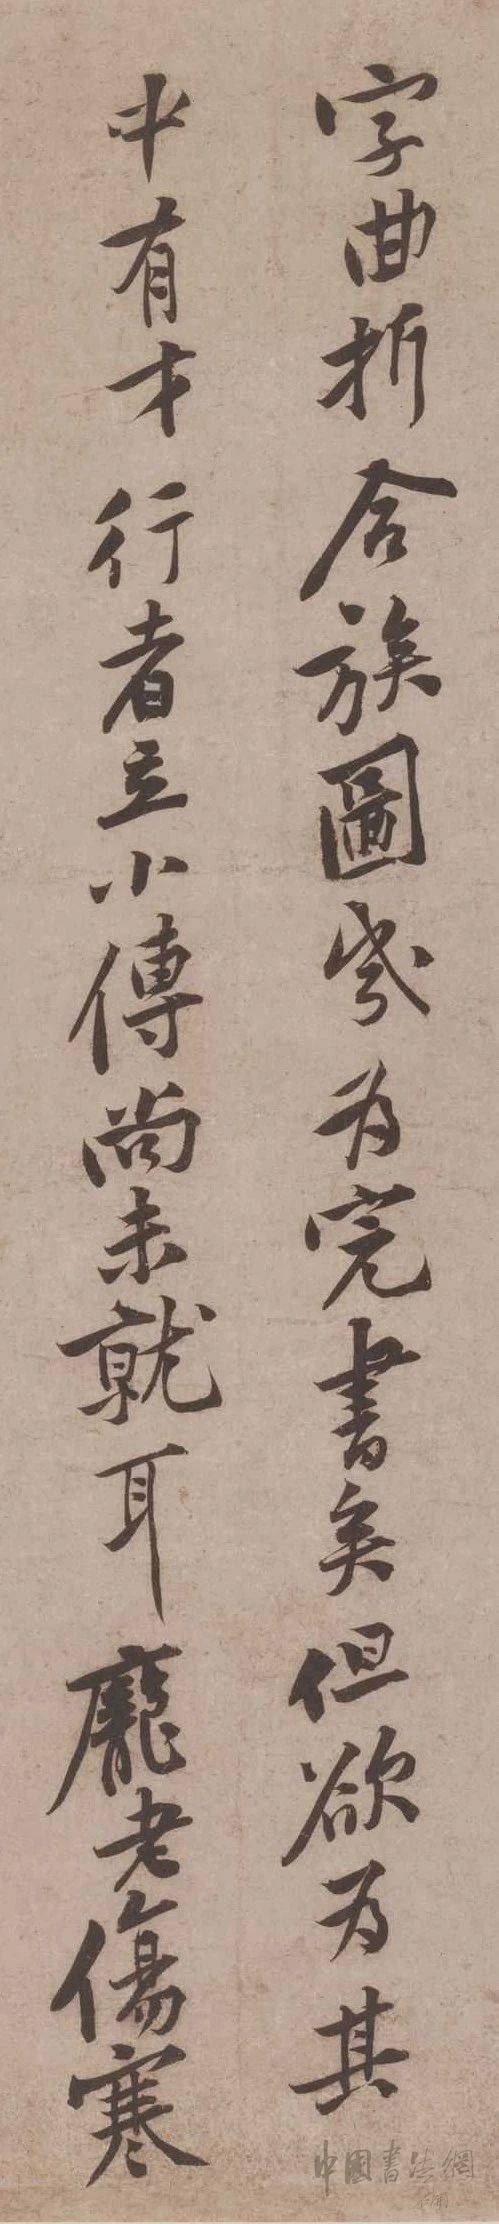 字曲折合族圖乃為完書矣但欲為其
中有才行者立小傳尚未就耳龐老傷寒
中國書法網